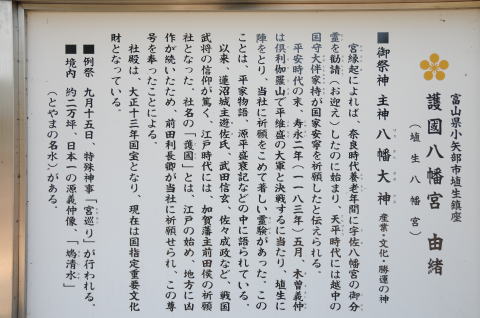 富山県小矢部市埴生鎮座
護國八幡宮 由緒
(埴生八幡宮)
■御祭神 主神 八幡大神 産業・文化・勝運の神
宮縁起によれば、奈良時代養老年間に宇佐八幡宮の御分
霊を勧請(お迎え)したのに始まり、天平時代には越中の
国守大伴家持が国家安寧を祈願したと伝えられる。
平安時代の末、寿永二年(一一八三年)五月、木曽義仲
は倶利伽羅山で平維盛の大軍と決戦するに当たり、埴生に
陣をとり、当社に祈願をこめて著しい霊験があった。この
ことは、平家物語、源平盛衰記などの中に語られている。
以来、蓮沼城主遊佐氏、武田信玄、佐々成政など、戦国
武将の信仰が篤く、江戸時代には 加賀藩主前田侯の祈願
社となった。社名の「護國」とは、江戸の始め、地方に凶
作が続いたため、前田利長卿が当社に祈願せられ、この尊
号を奉ったことによる。
社殿は、大正十三年国宝となり、現在は国指定重要文化
財となっている。
■例祭 九月十五日、特殊神事「宮巡り」が行われる。
■境内 約二万坪、日本一の源義仲像、「鳩清水」
(とやまの名水)がある。